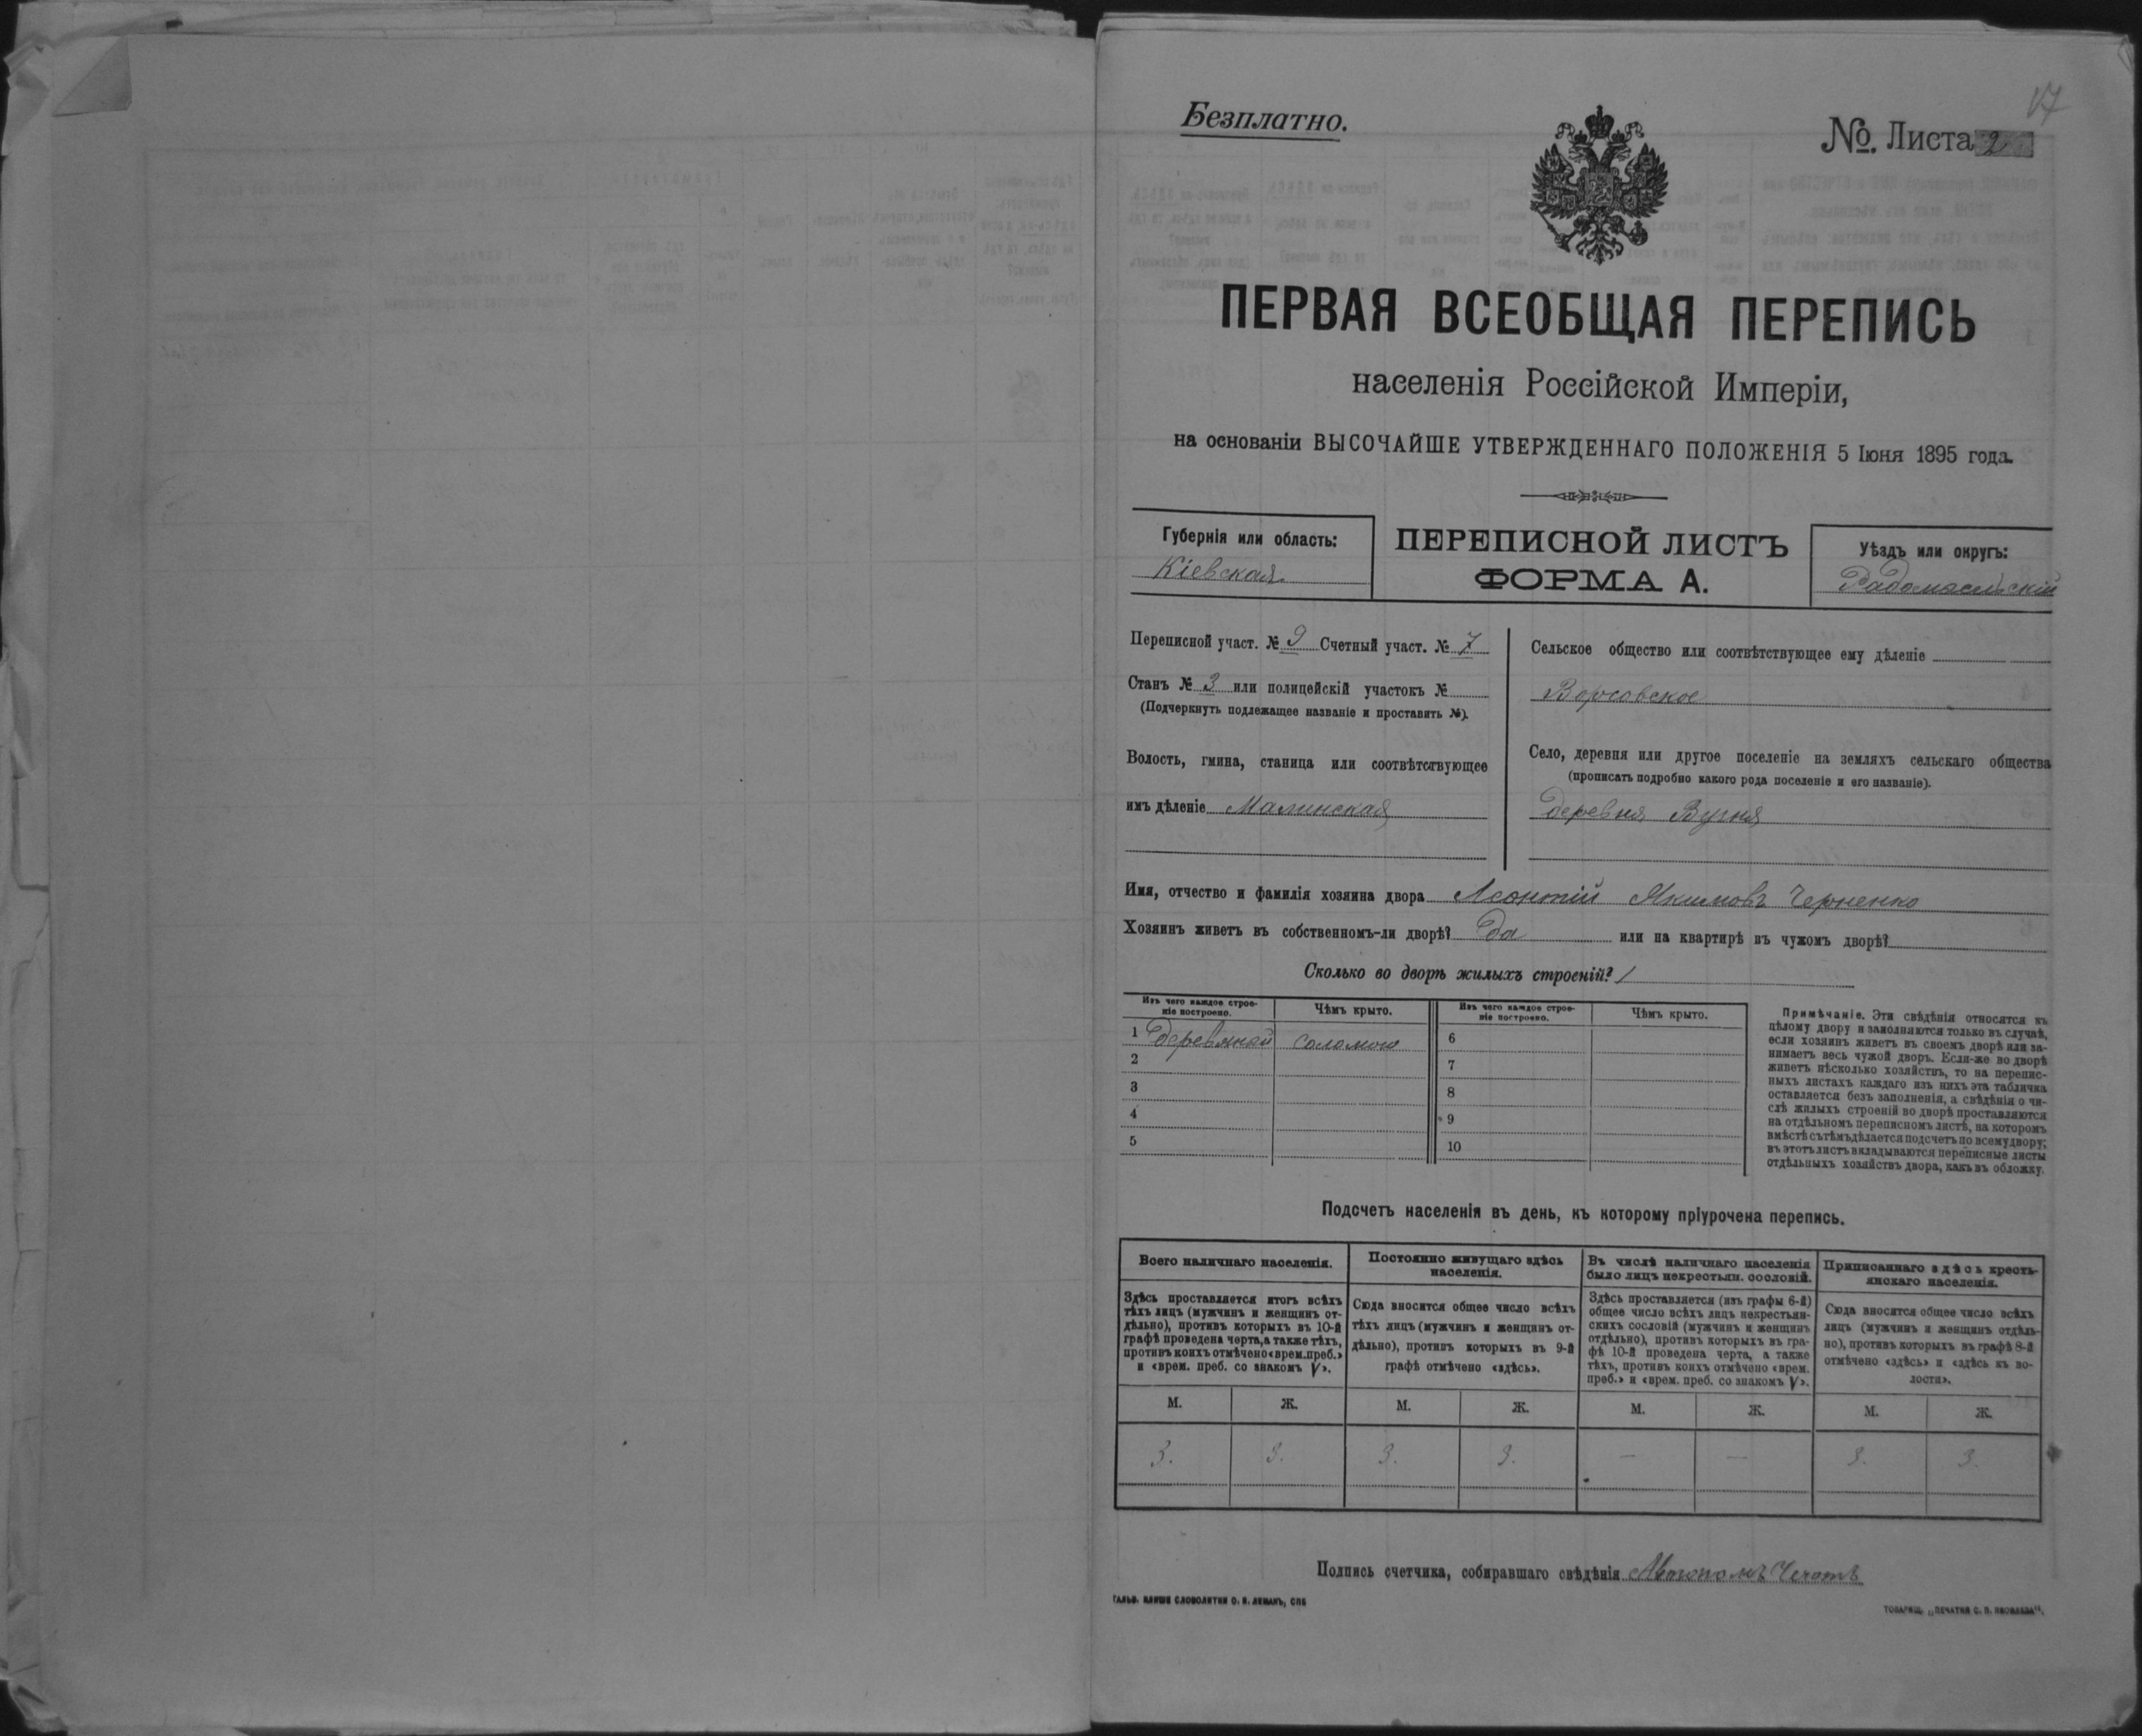 17
Безплатно.
№. Листа 2
ПЕРВАЯ ВСЕОБЩАЯ ПЕРЕПИСЬ
населенія Россійской Имперіи,
на основаніи ВЫСОЧАЙШЕ УТВЕРЖДЕННАГО ПОЛОЖЕНІЯ 5 Іюня 1895 года.
Губернія или область:
Кіевская
ПЕРЕПИСНОЙ ЛИСТЪ
ФОРМА А.
Уѣздъ или округъ:
Радомысльскій
Переписной участ. № 9 Счетный участ. № 7
Станъ № 3 или полицейскій участокъ №
(Подчеркнуть подлежащее названіе и проставить №).
Волость, гмина, станица или соотвѣтствующее
имъ дѣленіе Малинская
Сельское общество или соотвѣтствующее ему дѣленіе
Ворсовское
Село, деревня или другое поселеніе на земляхъ сельскаго общества
(прописать подробно какого рода поселеніе и его названіе).
деревня Вугня
Имя, отчество и фамилія хозяина двора Леонтій Якимовъ Черненко
Хозяинъ живетъ въ собственномъ-ли дворѣ? Да или на квартирѣ въ чужомъ дворѣ?
Сколько во дворѣ жилыхъ строеній? 1
Изъ чего каждое строе-
ніе построено.
Чѣмъ крыто.
Изъ чего каждое строе-
ніе построено.
Чѣмъ крыто.
1 деревяной соломою 6
2 7
3 8
4 9
5 10
Примѣчаніе. Эти свѣдѣнія относятся къ
цѣлому двору и заполняются только въ случаѣ,
если хозяинъ живетъ въ своемъ дворѣ или за-
нимаетъ весь чужой дворъ. Если-же во дворѣ
живетъ нѣсколько хозяйствъ, то на перепис-
ныхъ листахъ каждаго изъ нихъ эта табличка
оставляется безъ заполненія, а свѣдѣнія о чи-
слѣ жилыхъ строеній во дворѣ проставляются
на отдѣльномъ переписномъ листѣ, на которомъ
вмѣстѣ съ тѣмъ дѣлается подсчетъ по всему двору;
въ этотъ листъ вкладываются переписные листы
отдѣльныхъ хозяйствъ двора, какъ въ обложку.
Подсчетъ населенія въ день, къ которому пріурочена перепись.
Всего наличнаго населенія.
Здѣсь проставляется итогъ всѣхъ
тѣхъ лицъ (мужчинъ и женщинъ от-
дѣльно), противъ которыхъ въ 10-й
графѣ проведена черта, а также тѣхъ,
противъ коихъ отмѣчено «врем. преб.»
и «врем. преб. со знакомъ V».
Постоянно живущаго здѣсь
населенія.
Сюда вносится общее число всѣхъ
тѣхъ лицъ (мужчинъ и женщинъ от-
дѣльно), противъ которыхъ въ 9-й
графѣ отмѣчено «здѣсь».
Въ числѣ наличнаго населенія
было лицъ некрестьян. сословій.
Здѣсь проставляется (изъ графы 6-й)
общее число всѣхъ лицъ некрестьян-
скихъ сословій (мужчинъ и женщинъ
отдѣльно), противъ которыхъ въ гра-
фѣ 10-й проведена черта, а также
тѣхъ, противъ коихъ отмѣчено «врем.
преб.» и «врем. преб. со знакомъ V».
Приписаннаго здѣсь кресть-
янскаго населенія.
Сюда вносится общее число всѣхъ
лицъ (мужчинъ и женщинъ отдѣль-
но), противъ которыхъ въ графѣ 8-й
отмѣчено «здѣсь» и «здѣсь къ во-
лости».
М. Ж. М. Ж. М. Ж. М. Ж.
3. 3. 3. 3. — — 3. 3.
Подпись счетчика, собиравшаго свѣдѣнія
ГАЛЬВ. КЛИШЕ СЛОВОЛИТНИ О. И. ЛЕМАНЪ, СПБ
ТОВАРИЩ. „ПЕЧАТНЯ С. П. ЯКОВЛЕВА“.